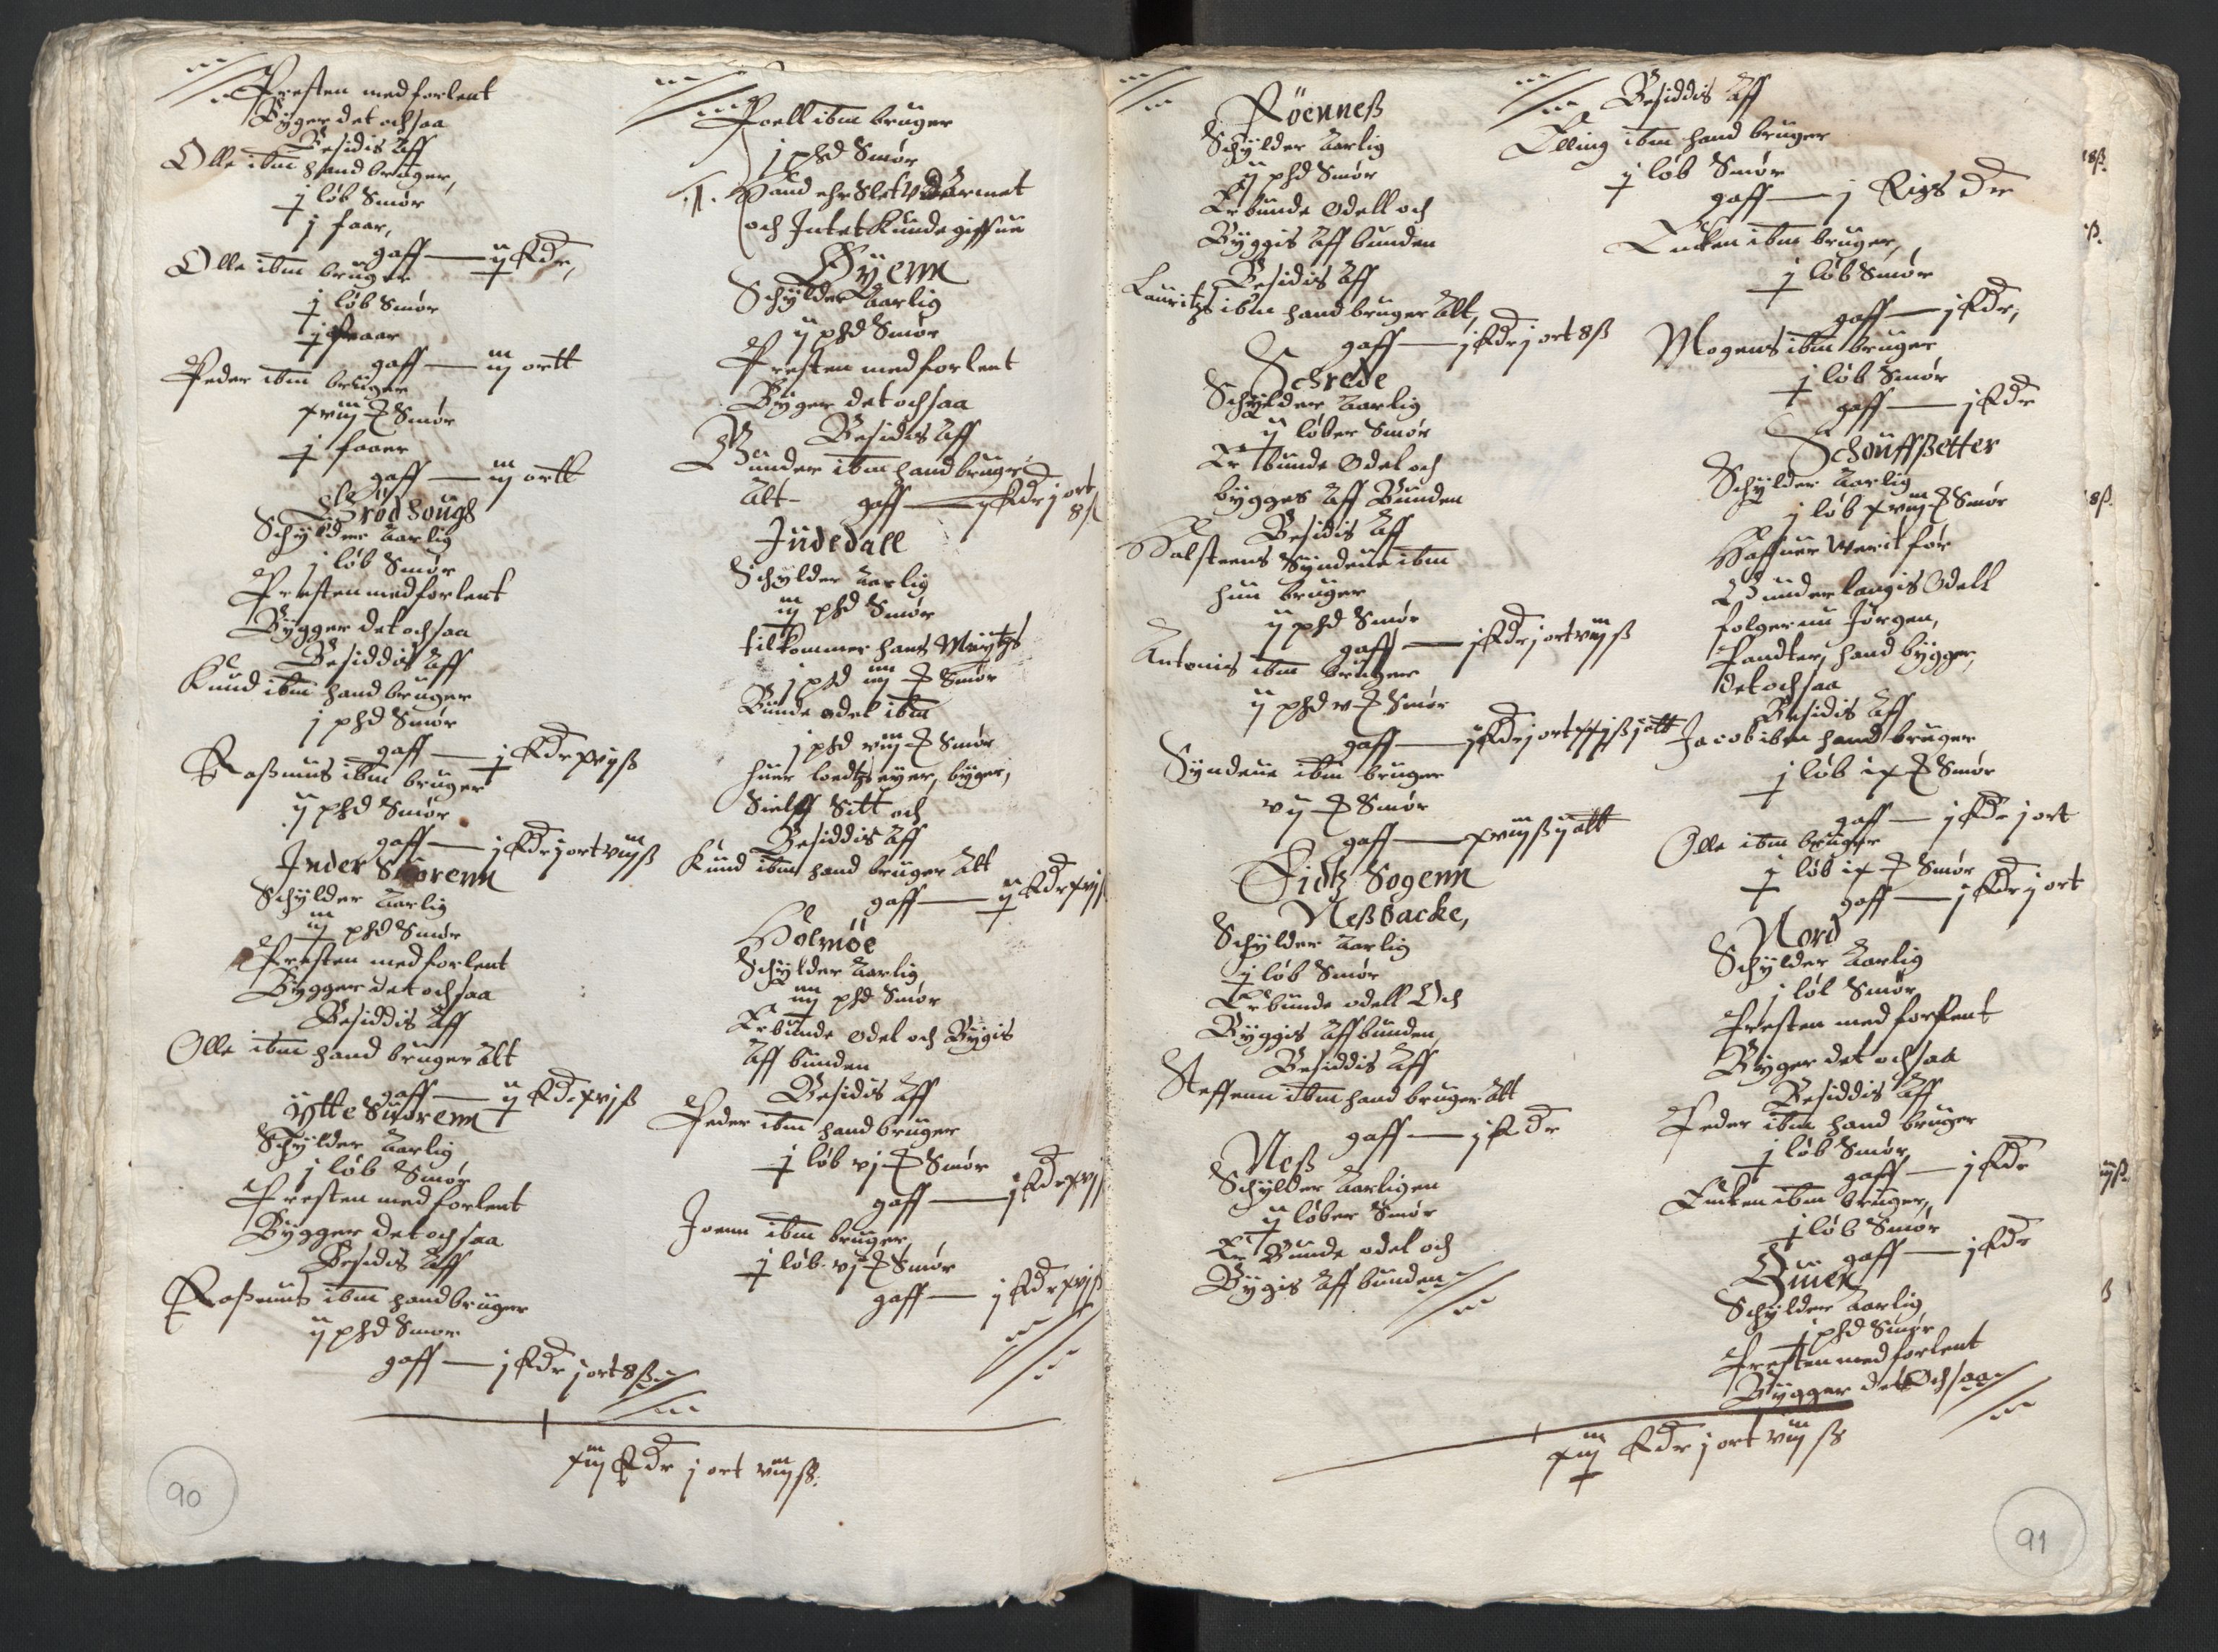 Presten med forlent
Byger det och saa
Besidis Aff
Olle ibm hand bruger,
j løb Smør
j faar,
gaff — ij Rdr,
Olle ibm bruger
j løb Smør
j faar
gaff — iij ortt
Peder ibm bruger
xviij Smør
j faaer
gaff — iij ortt
Schÿlder Aarlig
j løb Smør
Presten med forlent
Bÿgger det och saa
Besiddis Aff
Knud ibm hand bruger
j phd Smør
gaff — j Rdr xvjß
Raßmus ibm bruger
ij phd Smør
gaff — j Rdr j ort viijß
Inder Suorenn
Schÿlder Aarlig
iij phd Smør
Presten med forlent
Bÿgger det och saa
Besiddis Aff
Olle ibm hand bruger Alt
gaff — ij Rdr xvjß
Ytte Suorenn
Schÿlder Aarlig
j løb Smør
Presten med forlent
Bygger det och saa
Besidis Aff
Raßmus ibm hand bruger
ij phd Smør
gaff — j Rdr j ort 8ß
Poell ibm bruger
j phd Smør
.1. Hand ehr Slet vdarmet
och Intet Kunde giffue
Øÿenn
Schÿlder Aarlig
ij phd Smør
Presten med forlent
Byger det och saa
Besidis Aff
Gunder ibm hand bruger
Alt – gaff — j Rdr j ort
8ß
Indedall
Schÿlder Aarlig
iij phd Smør
tilkommer hans
j phd iiij Smør
Bunde odel ibm
j phd viij Smør
huer Loedtz eyer, byger,
Sielff Sitt och
Besiddis Aff
Knud ibm hand bruger Alt
gaff — ij Rdr xvjß
Holmöe
Schÿlder Aarlig
iiij phd Smør
Er bunde odel och Bygis
Aff bunden
Besidis Aff
Peder ibm hand bruger
j løb vj Smør
gaff — j Rdr xvjß
Joenn ibm bruger
j løb vj Smør
gaff — j Rdr xvjß
xiij Rdr j ort viijß.
90
Röenneß
Schÿlder Aarlig
ij phd Smør
Er bunde Odell och
Bÿggis Aff bunden
Besidis Aff
Lauritz ibm hand bruger Alt,
gaff — j Rdr j ort 8ß
Schrede
Schÿlder Aarlig
ij løber Smør
Er bunde Odel och
bygges Aff Bunden
Besidis Aff
Halsteens Syndeue ibm
hun bruger
ij phd Smør
gaff — j Rdr j ort viijß
Antonis ibm bruger
ij phd v Smør
gaff — j Rdr j ort
Syndeue ibm bruger
vij Smør
gaff — xviijß
Eidtz Sogenn
Neßbacke,
Schÿlder Aarlig
j løb Smør
Er bunde odell Och
Bÿggis Aff bunden
Besiddis Aff
Steffenn ibm hand bruger Alt
gaff — j Rdr
Neß
Schÿlder Aarligen
ij løber Smør
Er Bunde odel och
Bygis Aff bunden
Besiddis Aff
Elling ibm hand bruger
j løb Smør
gaff — j Rigs Dr
Encken ibm bruger,
j løb Smør
gaff — j Rdr,
Mogens ibm bruger
j løb Smør
gaff — j Rdr
Schouffßetter
Schÿlder Aarlig
j løb xviij Smør
Haffuer werit før
Gunder Langis Odell
følger nu Jørgen,
Pandter, hand bygger,
det och saa
Besidis Aff
Jacob ibm hand bruger
j løb ix Smør
gaff — j Rdr j ort
Olle ibm bruger
j løb ix Smør
gaff — j Rdr j ort
Nord
Schÿlder Aarlig
j løb Smør
Presten med forlent
Byger det och saa
Besiddis Aff
Peder ibm hand bruger
j løb Smør
gaff — j Rdr
Encken ibm bruger,
j løb Smør
gaff — j Rdr
Schÿlder Aarlig
j phd Smør
Presten med forlent
Bygger det Och saa
xiij Rdr j ort viij ß
91